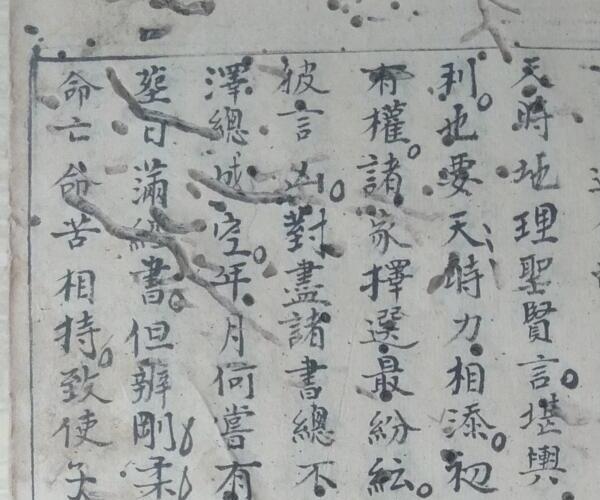 天時地理聖賢言。堪輿
利。也要天時力相添。初
有權。諸家擇選最紛紜。
彼言凶。對盡諸書總不
澤總成空。年月何嘗有
塟日滿紙書。但辨剛柔
命亡命苦相持。致使